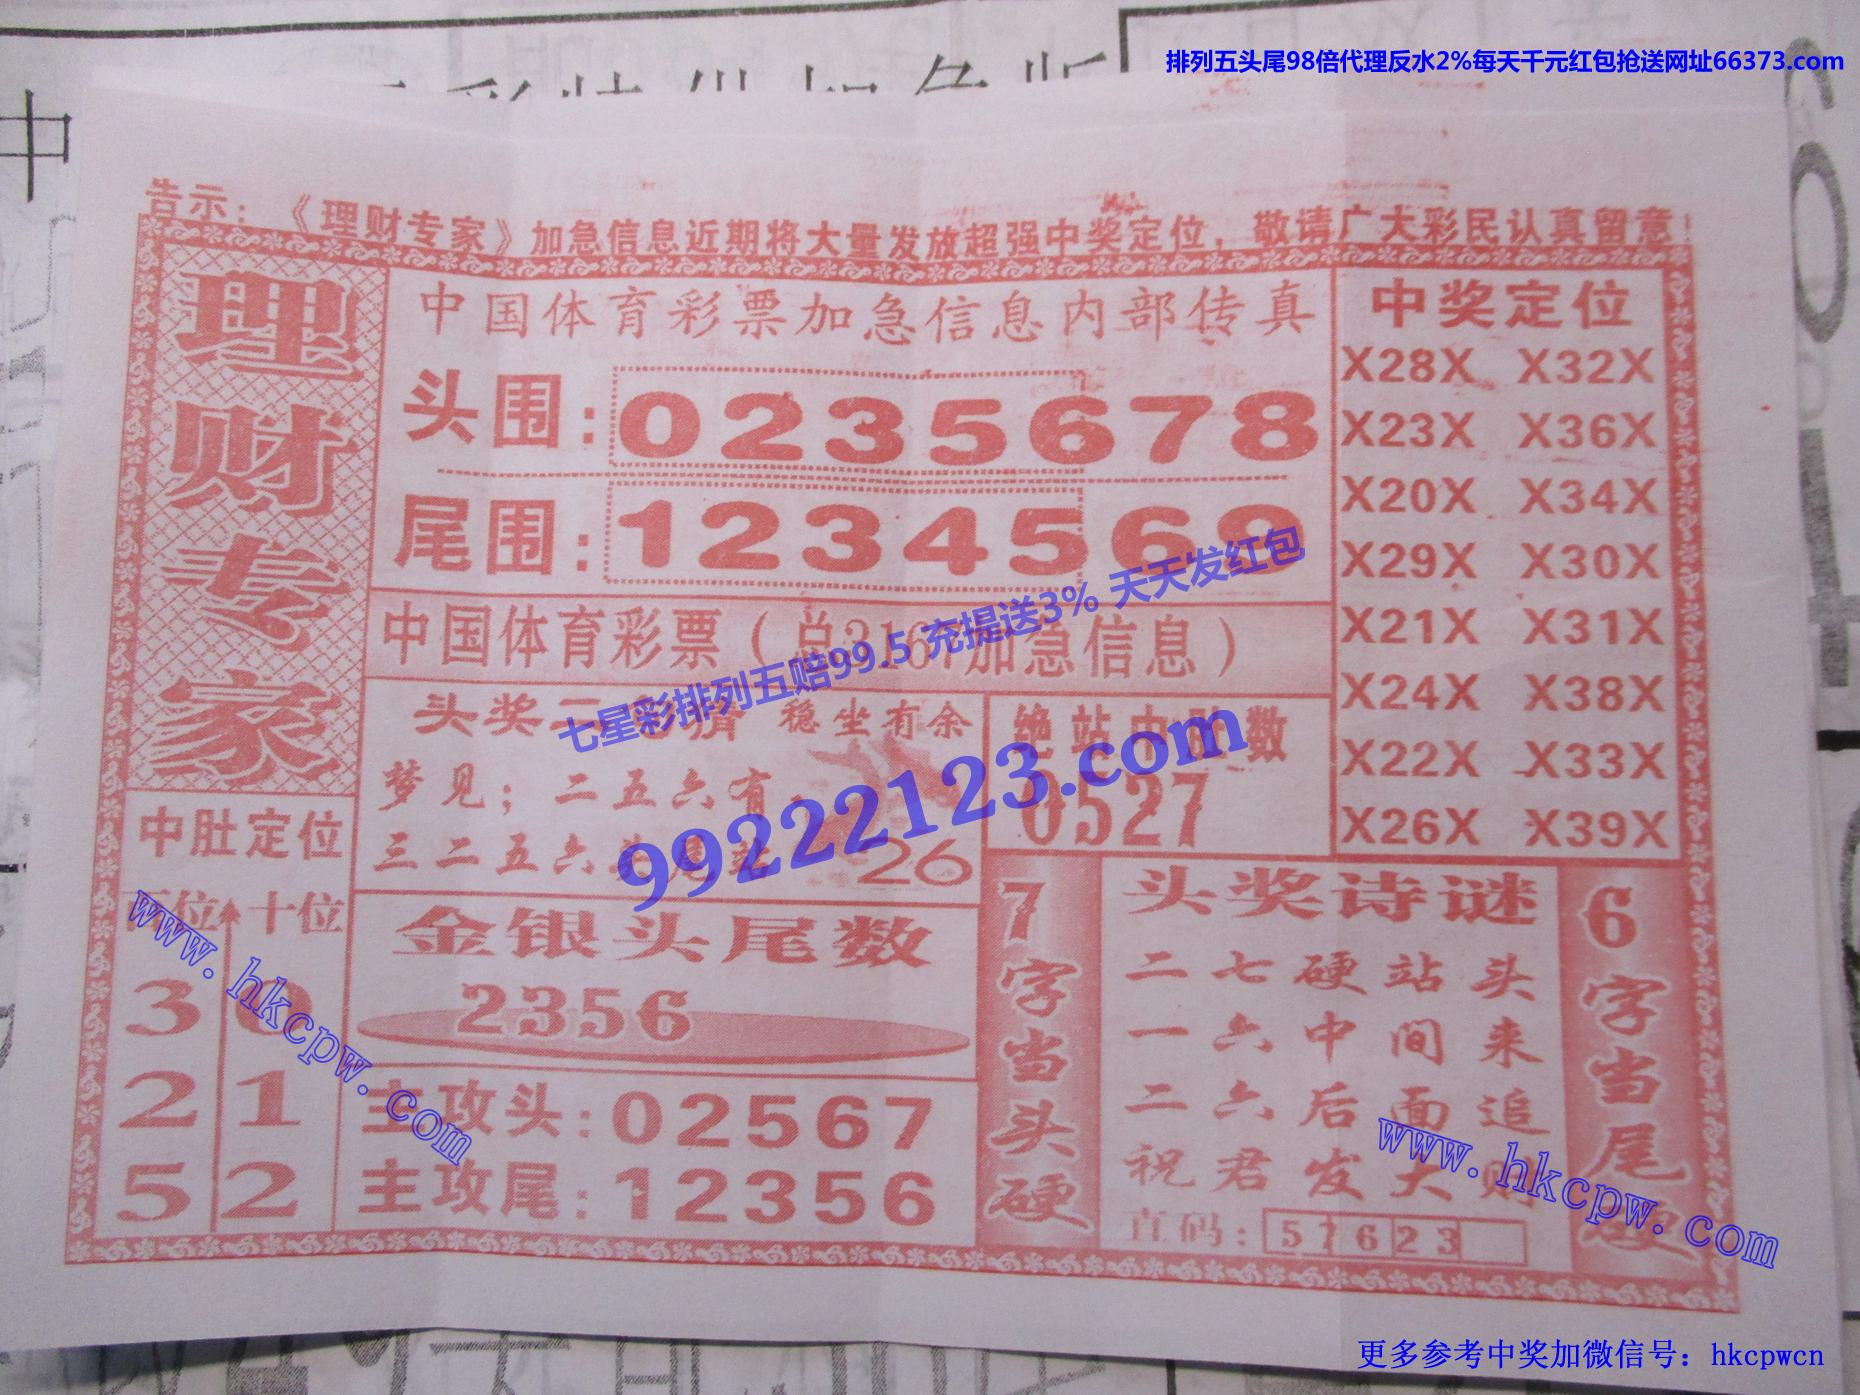 排列五头尾98倍代理反水2%每天千元红包抢送网址66373.com
中
告示：《理财专家》加急信息近期将大量发放超强中奖定位，敬请广大彩民认真留意！
理财专家
中国体育彩票加急信息内部传真
头围：0235678
尾围：1234569
中国体育彩票（总 加急信息）
七星彩排列五赔99.5 充提送3% 天天发红包
99222123.com
头奖 稳坐有余
梦见；二五六有
三二五六头尾站
26
绝站中肚数
0527
中奖定位
X28X X32X
X23X X36X
X20X X34X
X29X X30X
X21X X31X
X24X X38X
X22X X33X
X26X X39X
中肚定位
百位 十位
3 0
2 1
5 2
www.hkcpw.com
金银头尾数
2356
主攻头：02567
主攻尾：12356
7字当头硬
头奖诗谜
二七硬站头
一六中间来
二六后面追
祝君发大财
直码：57623
6字当尾硬
www.hkcpw.com
更多参考中奖加微信号：hkcpwcn